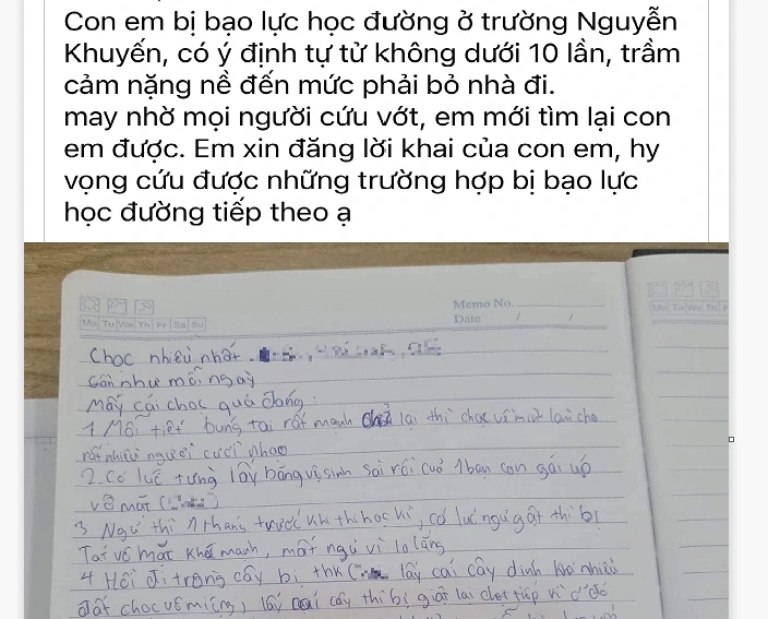 Con em bị bạo lực học đường ở trường Nguyễn
Khuyến, có ý định tự tử không dưới 10 lần, trầm
cảm nặng nề đến mức phải bỏ nhà đi.
may nhờ mọi người cứu vớt, em mới tìm lại con
em được. Em xin đăng lời khai của con em, hy
vọng cứu được những trường hợp bị bạo lực
học đường tiếp theo ạ
Memo No.
Mo Tu We Th Fr Sa Su
Date / /
Mo Tu We Th F
Chọc nhiều nhất
Gần như mỗi ngày
Mấy cái chọc quá đáng:
1 Mỗi tiết búng tai rất mạnh lại thì chọc vì mình làm cho
rất nhiều người cười nhạo
2. Có lúc từng lấy băng vệ sinh sài rồi của 1 bạn con gái úp
vô mặt (
3 Ngủ thì 1 tháng trước khi thi học kì, có lúc ngủ gật thì bị
Tát vô mặt khá mạnh, mất ngủ vì lo lắng
4 Hồi đi trồng cây bị thk ( lấy cái cây dính nhiều
đất chọc vô miệng) lấy cái cây thì bị giật lại chọt tiếp vì ở đó